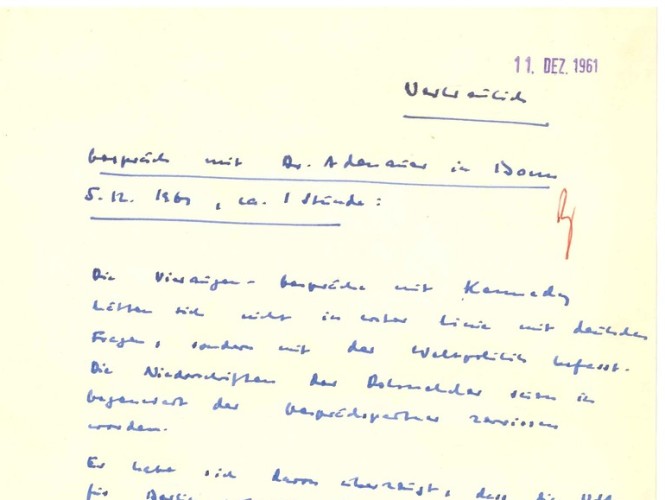 11. DEZ. 1961
Vertraulich
Gespräch mit Dr. Adenauer in Bonn
5.12.1961, ca. 1 Stunde:
Die Vieraugen-Gespräche mit Kennedy
hätten sich nicht in erster Linie mit deutschen
Fragen, sondern mit der Weltpolitik befasst.
Die Niederschriften der Dolmetscher seien in
Gegenwart der Gesprächspartner zerrissen
worden.
Er habe sich davon überzeugt, dass die
für Berlin